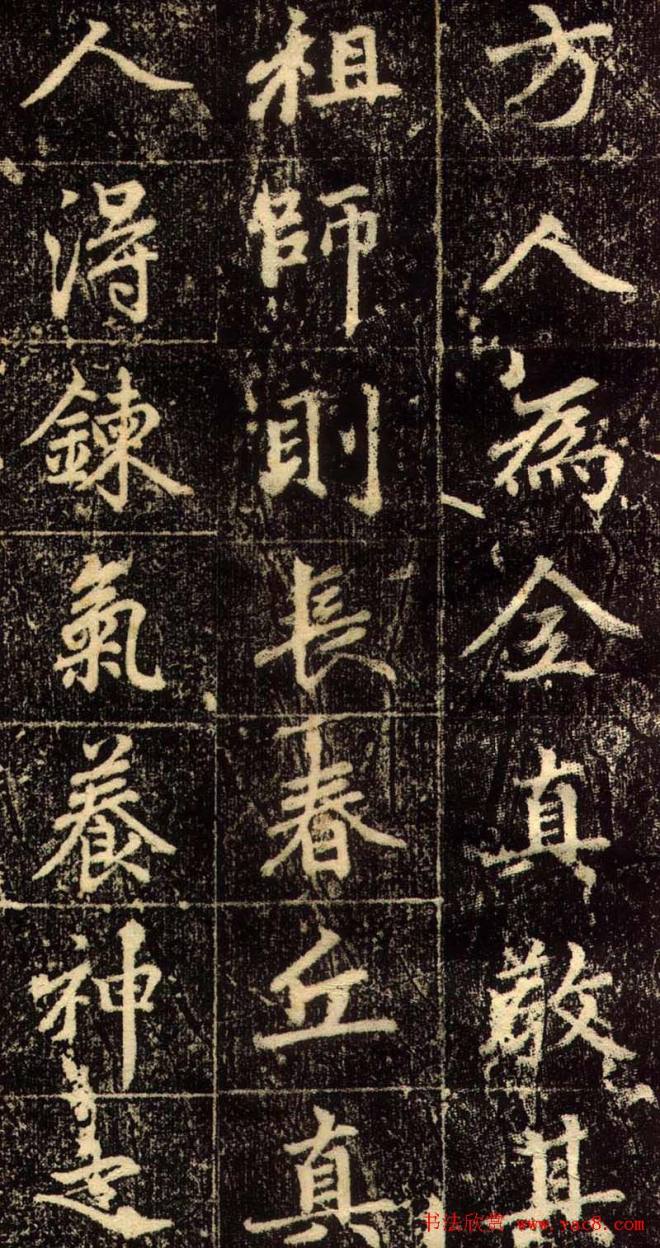 方人為全真敬其
祖師則長春丘真
人得鍊氣養神
书法欣赏 www.yac8.com